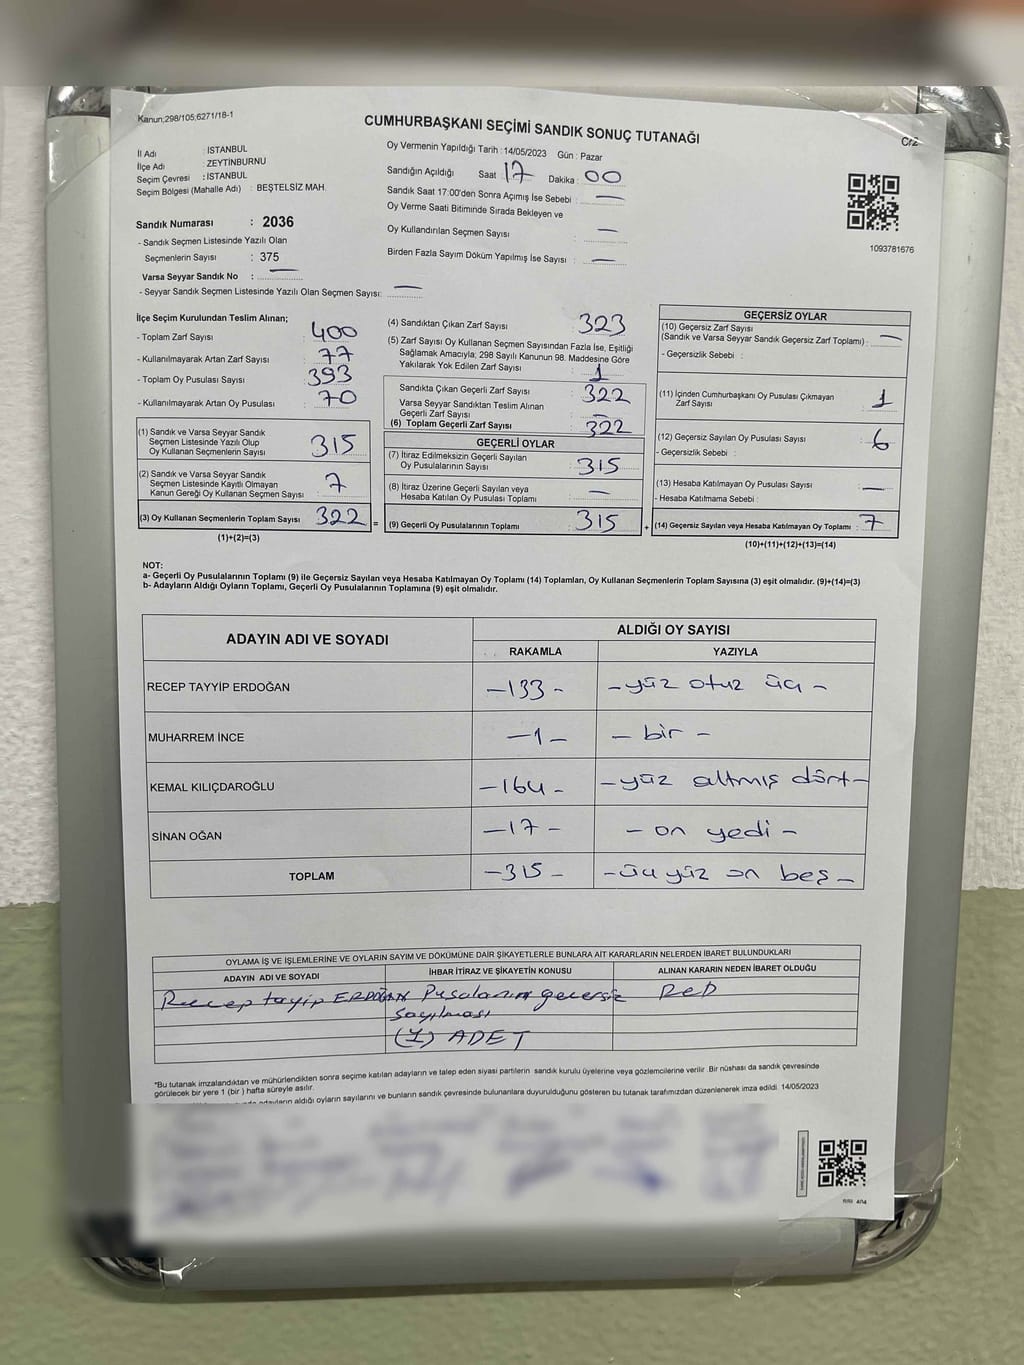 Kanun;298/105;6271/18-1
CUMHURBAŞKANI SEÇİMİ SANDIK SONUÇ TUTANAĞI
Crz
İl Adı : İSTANBUL
İlçe Adı : ZEYTİNBURNU
Seçim Çevresi : İSTANBUL
Seçim Bölgesi (Mahalle Adı) : BEŞTELSİZ MAH.
Sandık Numarası : 2036
- Sandık Seçmen Listesinde Yazılı Olan
Seçmenlerin Sayısı : 375
Varsa Seyyar Sandık No : —
- Seyyar Sandık Seçmen Listesinde Yazılı Olan Seçmen Sayısı: —
Oy Vermenin Yapıldığı Tarih : 14/05/2023 Gün : Pazar
Sandığın Açıldığı Saat : 17 Dakika : 00
Sandık Saat 17:00'den Sonra Açımış İse Sebebi : —
Oy Verme Saati Bitiminde Sırada Bekleyen ve
Oy Kullandırılan Seçmen Sayısı : —
Birden Fazla Sayım Döküm Yapılmış İse Sayısı : —
1093781676
İlçe Seçim Kurulundan Teslim Alınan;
- Toplam Zarf Sayısı : 400
- Kullanılmayarak Artan Zarf Sayısı : 77
- Toplam Oy Pusulası Sayısı : 393
- Kullanılmayarak Artan Oy Pusulası : 70
(1) Sandık ve Varsa Seyyar Sandık
Seçmen Listesinde Yazılı Olup
Oy Kullanan Seçmenlerin Sayısı : 315
(2) Sandık ve Varsa Seyyar Sandık
Seçmen Listesinde Kayıtlı Olmayan
Kanun Gereği Oy Kullanan Seçmen Sayısı : 7
(3) Oy Kullanan Seçmenlerin Toplam Sayısı : 322 =
(1)+(2)=(3)
(4) Sandıktan Çıkan Zarf Sayısı : 323
(5) Zarf Sayısı Oy Kullanan Seçmen Sayısından Fazla İse, Eşitliği
Sağlamak Amacıyla; 298 Sayılı Kanunun 98. Maddesine Göre
Yakılarak Yok Edilen Zarf Sayısı : 1
Sandıkta Çıkan Geçerli Zarf Sayısı : 322
Varsa Seyyar Sandıktan Teslim Alınan
Geçerli Zarf Sayısı : —
(6) Toplam Geçerli Zarf Sayısı : 322
GEÇERLİ OYLAR
(7) İtiraz Edilmeksizin Geçerli Sayılan
Oy Pusulalarının Sayısı : 315
(8) İtiraz Üzerine Geçerli Sayılan veya
Hesaba Katılan Oy Pusulası Toplamı : —
(9) Geçerli Oy Pusulalarının Toplamı : 315 +
GEÇERSİZ OYLAR
(10) Geçersiz Zarf Sayısı
(Sandık ve Varsa Seyyar Sandık Geçersiz Zarf Toplamı) : —
- Geçersizlik Sebebi :
(11) İçinden Cumhurbaşkanı Oy Pusulası Çıkmayan
Zarf Sayısı : 1
(12) Geçersiz Sayılan Oy Pusulası Sayısı : 6
- Geçersizlik Sebebi :
(13) Hesaba Katılmayan Oy Pusulası Sayısı : —
- Hesaba Katılmama Sebebi :
(14) Geçersiz Sayılan veya Hesaba Katılmayan Oy Toplamı : 7
(10)+(11)+(12)+(13)=(14)
NOT:
a- Geçerli Oy Pusulalarının Toplamı (9) ile Geçersiz Sayılan veya Hesaba Katılmayan Oy Toplamı (14) Toplamları, Oy Kullanan Seçmenlerin Toplam Sayısına (3) eşit olmalıdır. (9)+(14)=(3)
b- Adayların Aldığı Oyların Toplamı, Geçerli Oy Pusulalarının Toplamına (9) eşit olmalıdır.
ADAYIN ADI VE SOYADI ALDIĞI OY SAYISI
RAKAMLA YAZIYLA
RECEP TAYYİP ERDOĞAN -133- - yüz otuz üç -
MUHARREM İNCE -1- - bir -
KEMAL KILIÇDAROĞLU -164- - yüz altmış dört -
SİNAN OĞAN -17- - on yedi -
TOPLAM -315- - üç yüz on beş -
OYLAMA İŞ VE İŞLEMLERİNE VE OYLARIN SAYIM VE DÖKÜMÜNE DAİR ŞİKAYETLERLE BUNLARA AİT KARARLARIN NELERDEN İBARET BULUNDUKLARI
ADAYIN ADI VE SOYADI İHBAR İTİRAZ VE ŞİKAYETİN KONUSU ALINAN KARARIN NEDEN İBARET OLDUĞU
Recep tayip ERDOĞAN Pusulanın geçersiz RED
sayılması
(1) ADET
*Bu tutanak imzalandıktan ve mühürlendikten sonra seçime katılan adayların ve talep eden siyasi partilerin sandık kurulu üyelerine veya gözlemcilerine verilir .Bir nüshası da sandık çevresinde
görülecek bir yere 1 (bir ) hafta süreyle asılır.
adayların aldığı oyların sayılarını ve bunların sandık çevresinde bulunanlara duyurulduğunu gösteren bu tutanak tarafımızdan düzenlenerek imza edildi. 14/05/2023